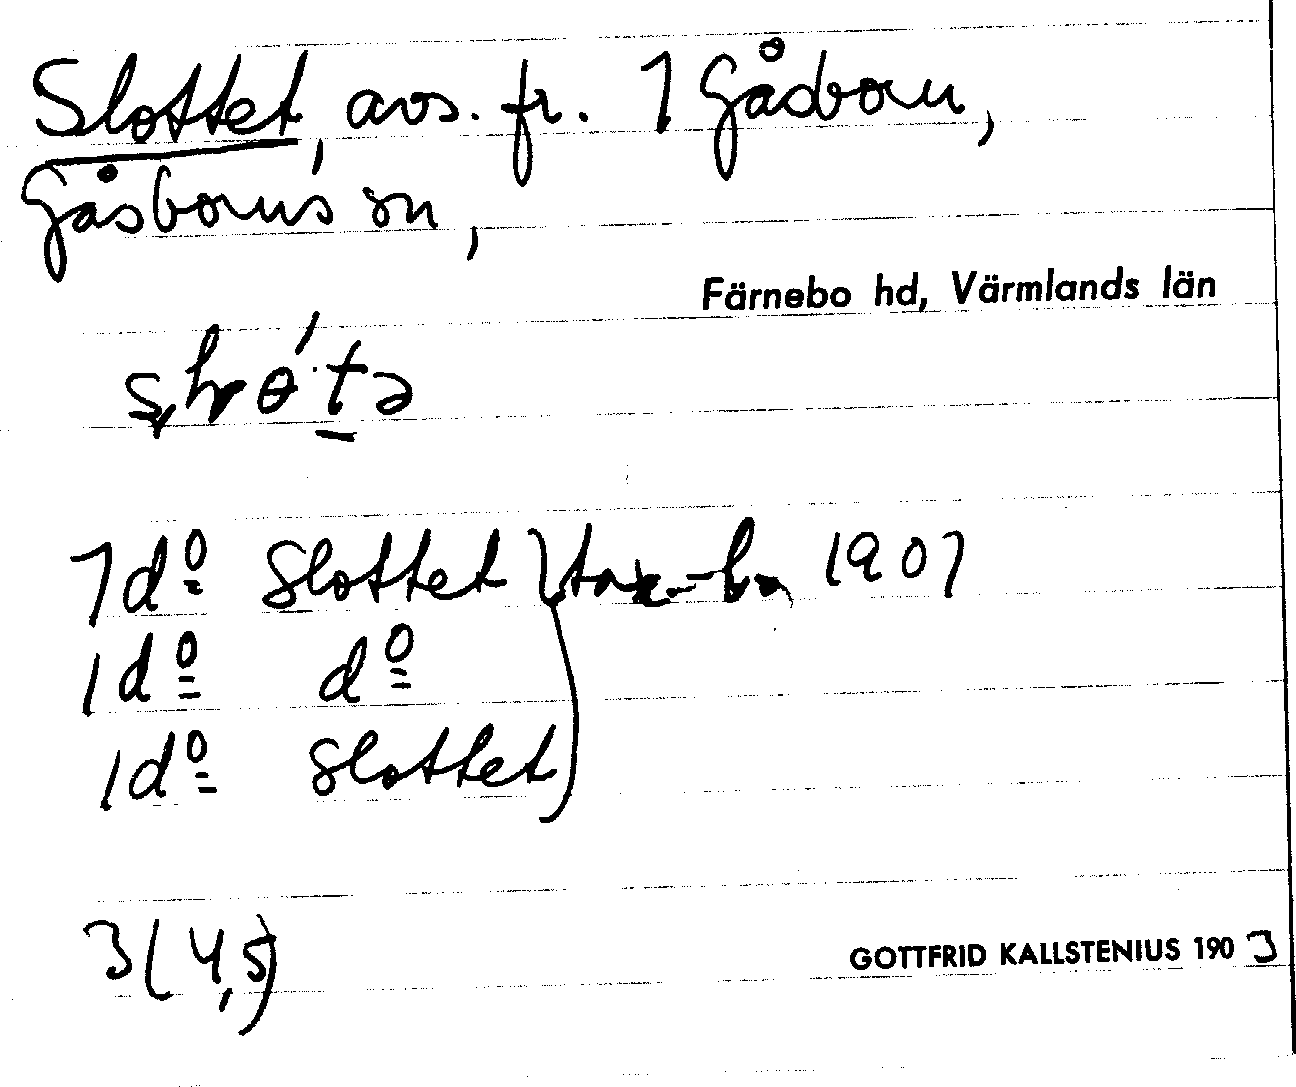 Slottet, avs. fr. 1 Gåsborn,
Gåsborns sn,
Färnebo hd, Värmlands län
1 dº Slottet } 1907
1 dº dº
1 dº Slottet
3(4,5)
GOTTFRID KALLSTENIUS 1903